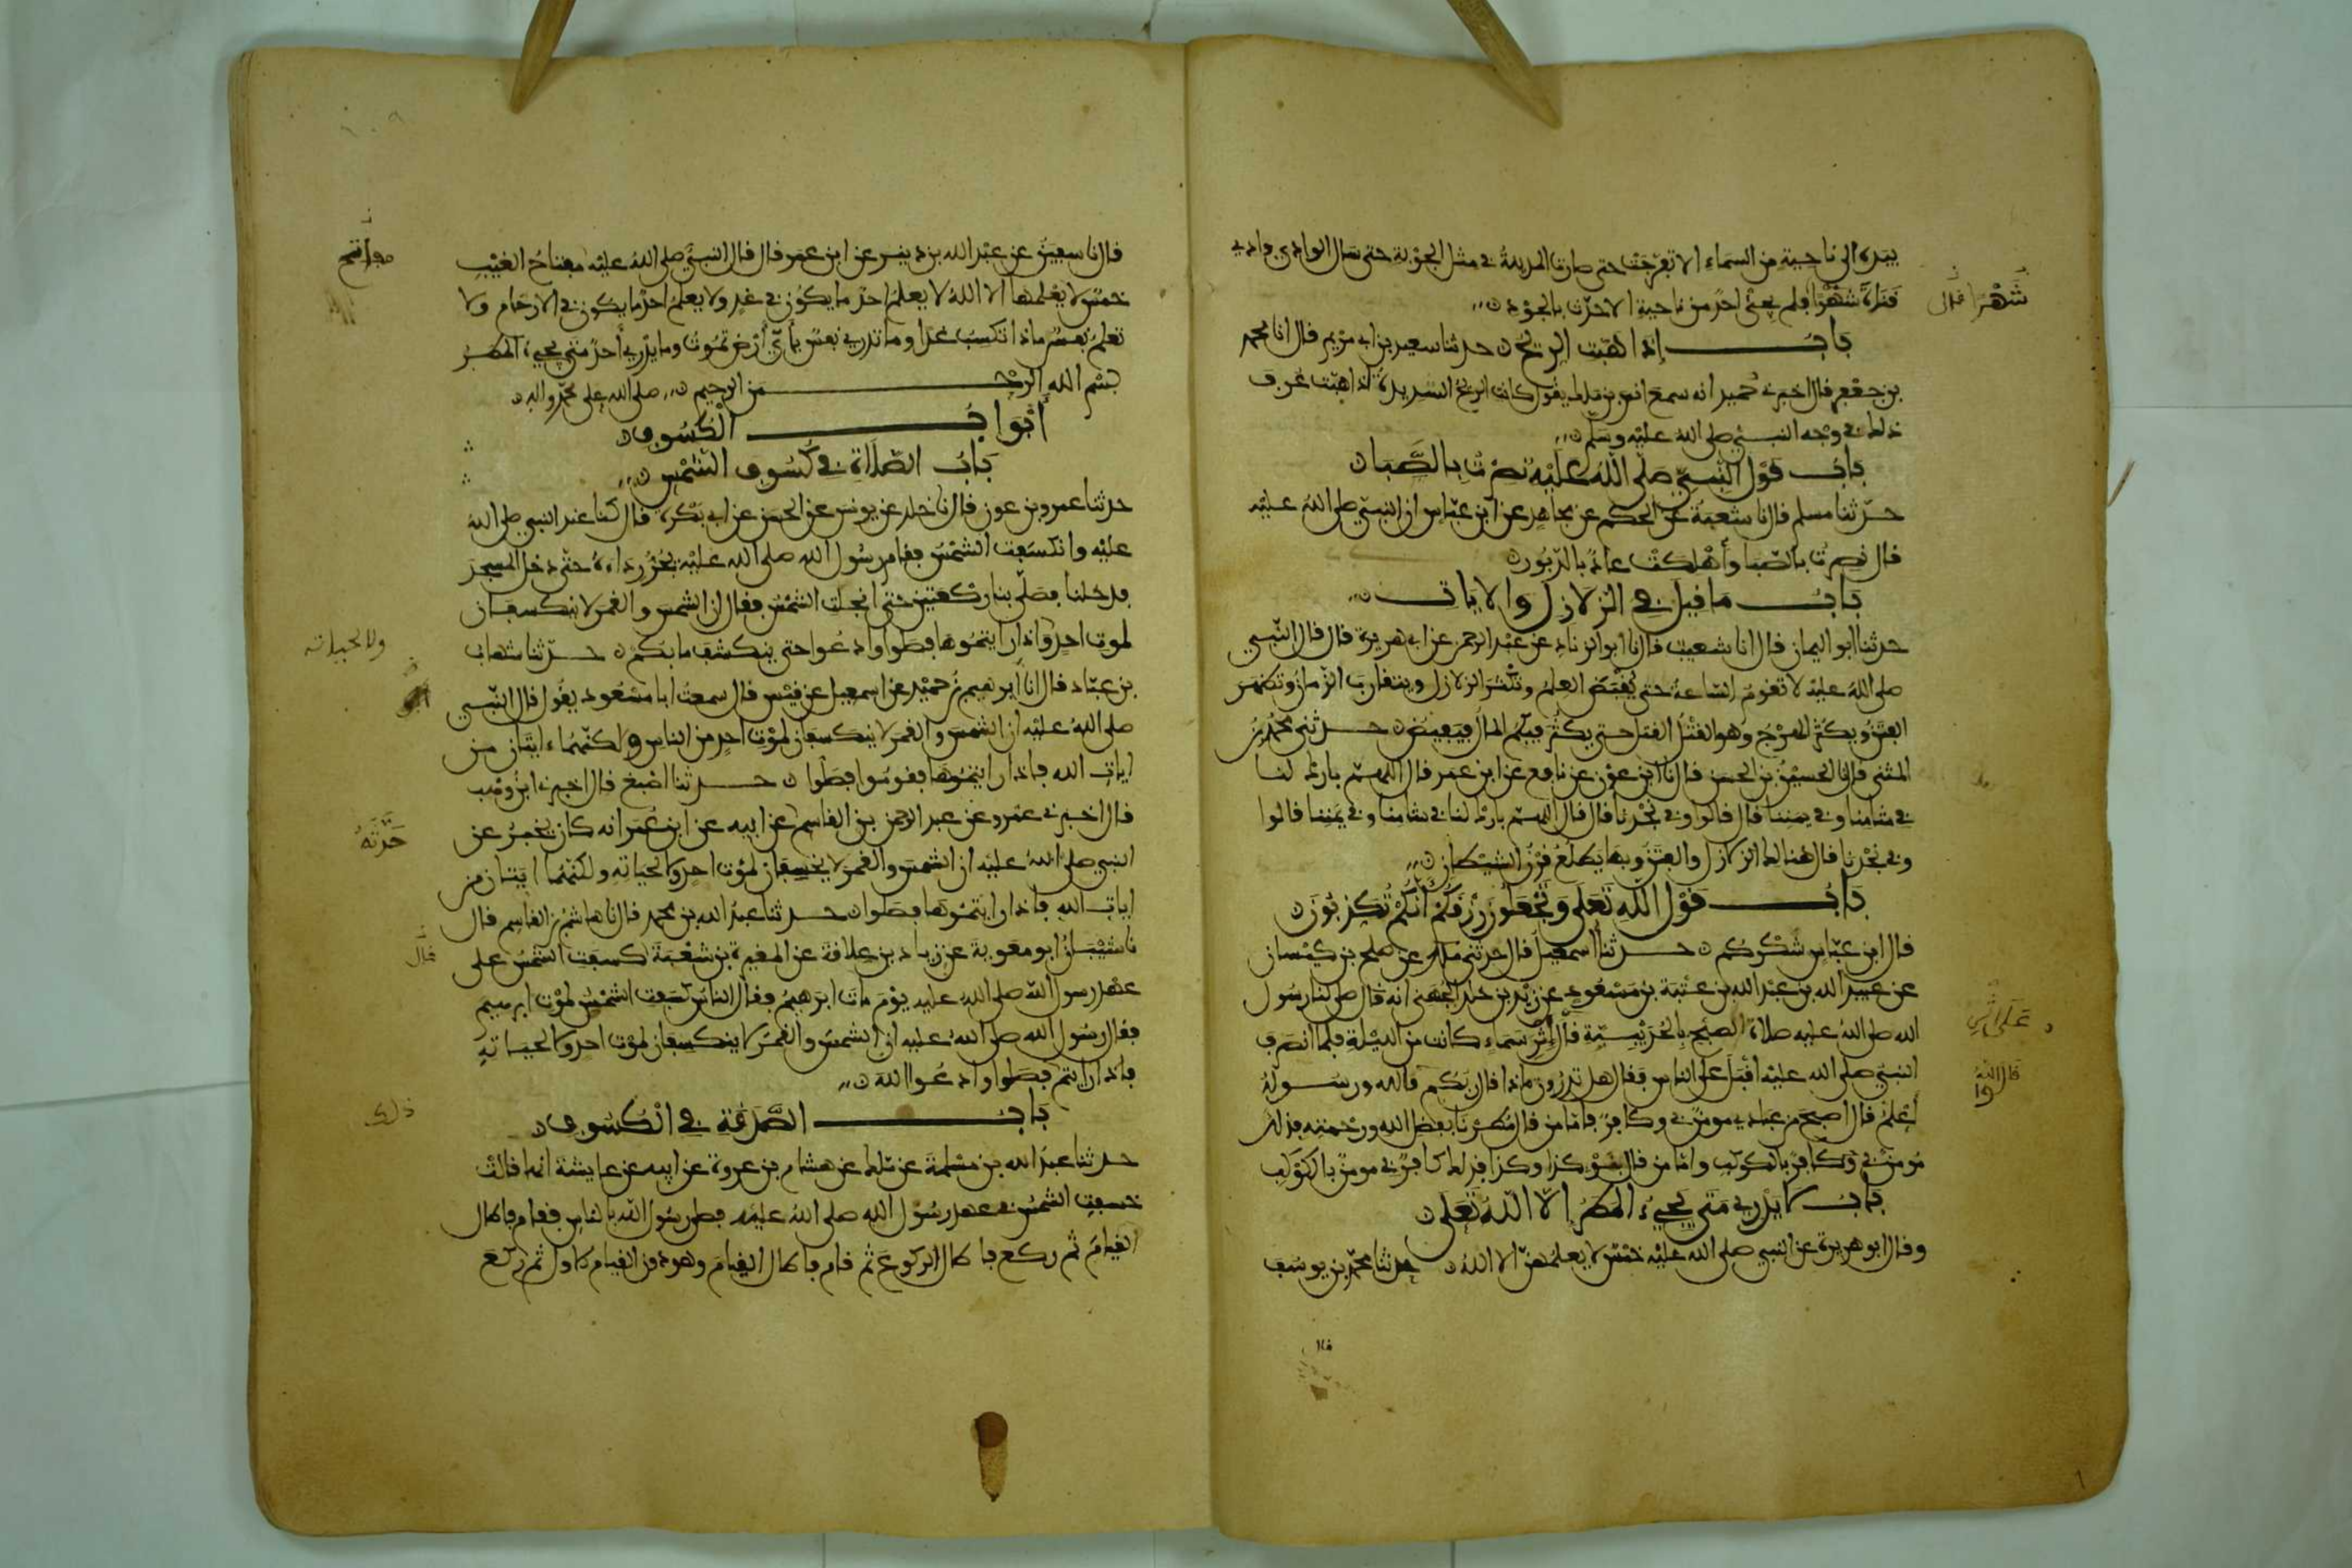 بيده الى ناحية من السماء الا تفرجت حتى صارت المدينة في مثل الجوبة حتى سال الوادي وادي
قناة شهرا فلم يجئ احد من ناحية الا حدث بالجود
شهرا قال
باب إذا هبت الريح حدثنا سعيد بن ابي مريم قال انا محمد
بن جعفر قال اخبرني حميد انه سمع انس بن ملك يقول كانت الريح الشديدة اذا هبت عرف
ذلك في وجه النبي صلى الله عليه وسلم
باب قول النبي صلى الله عليه نصرت بالصبا
حدثنا مسلم قال نا شعبة عن الحكم عن مجاهد عن ابن عباس ان النبي صلى الله عليه
قال نصرت بالصبا وأهلكت عاد بالدبور
باب ما قيل في الزلازل والايات
حدثنا ابو اليمان قال انا شعيب قال نا ابو الزناد عن عبد الرحمن عن ابي هريرة قال قال النبي
صلى الله عليه لا تقوم الساعة حتى يقبض العلم وتكثر الزلازل ويتقارب الزمان وتظهر
الفتن ويكثر الهرج وهو القتل القتل حتى يكثر فيكم المال فيفيض حدثني محمد بن
المثنى قال نا الحسين بن الحسن قال نا ابن عون عن نافع عن ابن عمر قال اللهم بارك لنا
في شامنا وفي يمننا قال قالوا وفي نجدنا قال قال اللهم بارك لنا في شامنا وفي يمننا قالوا
وفي نجدنا قال هنالك الزلازل والفتن وبها يطلع قرن الشيطان
باب قول الله تعلى وتجعلون رزقكم أنكم تكذبون
قال ابن عباس شكركم حدثنا اسمعيل قال حدثني ملك عن صلح بن كيسان
عن عبيد الله بن عبد الله بن عتبة بن مسعود عن زيد بن خلد الجهني انه قال صلى لنا رسول
الله صلى الله عليه صلاة الصبح بالحديبية إثر سماء كانت من الليلة فلما انصرف
على اثر
النبي صلى الله عليه اقبل على الناس فقال هل تدرون ماذا قال ربكم قالوا الله ورسوله
أعلم قال اصبح من عبادي مومن بي وكافر فاما من قال مطرنا بفضل الله ورحمته فذلك
مومن بي وكافر بالكوكب واما من قال بنوء كذا وكذا فذلك كافر بي مومن بالكوكب
باب لا يدري متى يجيء المطر إلا الله تعلى
وقال ابو هريرة عن النبي صلى الله عليه خمس لا يعلمهن الا الله حدثنا محمد بن يوسف
قال
قال نا سفين عن عبد الله بن دينر عن ابن عمر قال قال النبي صلى الله عليه مفتاح الغيب
مفاتح
خمس لا يعلمها الا الله لا يعلم احد ما يكون في غد ولا يعلم احد ما يكون في الارحام ولا
تعلم نفس ماذا تكسب غدا وما تدري نفس بأي أرض تموت وما يدري أحد متى يجيء المطر
بسم الله الرحمن الرحيم صلى الله على محمد واله
أبواب الكسوف
باب الصلاة في كسوف الشمس
حدثنا عمرو بن عون قال نا خلد عن يونس عن الحسن عن ابي بكرة قال كنا عند النبي صلى الله
عليه وانكسفت الشمس فقام رسول الله صلى الله عليه يجر رداءه حتى دخل المسجد
فدخلنا فصلى بنا ركعتين حتى انجلت الشمس فقال ان الشمس والقمر لا ينكسفان
لموت احد واذا رايتموها فصلوا وادعوا حتى ينكشف ما بكم حدثنا شهاب
ولا لحياته
بن عباد قال انا ابرهيم بن حميد عن اسمعيل عن قيس قال سمعت ابا مسعود يقول قال النبي
صلى الله عليه ان الشمس والقمر لا ينكسفان لموت احد من الناس ولكنهما ايتان من
ايات الله فاذا رايتموها فقوموا فصلوا حدثنا اصبغ قال اخبرني ابن وهب
قال اخبرني عمرو عن عبد الرحمن بن القاسم حدثه عن ابيه عن ابن عمر انه كان يخبر عن
النبي صلى الله عليه ان الشمس والقمر لا يخسفان لموت احد ولا لحياته ولكنهما ايتان من
ايات الله فاذا رايتموها فصلوا حدثنا عبد الله بن محمد قال نا هاشم بن القاسم قال
نا شيبان ابو معوية عن زياد بن علاقة عن المغيرة بن شعبة كسفت الشمس على
قال
عهد رسول الله صلى الله عليه يوم مات ابرهيم فقال الناس كسفت الشمس لموت ابرهيم
فقال رسول الله صلى الله عليه ان الشمس والقمر لا ينكسفان لموت احد ولا لحياته
فاذا رايتم فصلوا وادعوا الله
ذلك
باب الصدقة في الكسوف
حدثنا عبد الله بن مسلمة عن ملك عن هشام بن عروة عن ابيه عن عايشة انها قالت
خسفت الشمس في عهد رسول الله صلى الله عليه فصلى رسول الله بالناس فقام فاطال
القيام ثم ركع فاطال الركوع ثم قام فاطال القيام وهو دون القيام الاول ثم ركع